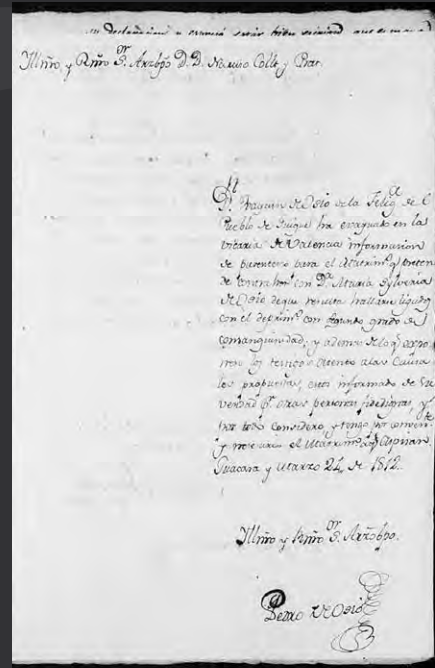 Yllmo. y Rmo. Sr. Arzbpo D. D. Narciso Coll y Prat.
Dn. Joaquin de Osio de la Felig.a de el
Pueblo de Guigue ha evaquado en la
vicaria de Valencia informacion
de parentesco para el Matrimo. q. preten
de contraher con Da. Maria Sylveria
de Osio de que resulta hallarse ligados
con el de primo. con segundo grado de
consanguinidad; y ademas de lo q. expo
nen los testigos a las Causa
les propuestas, estoy informado de su
verdad pr. otras personas fidedignas, y
por todo considero, y tengo por conven.te
y necesario el Matrimo. a q. aspiran.
Guacara y Marzo 24 de 1812.
Yllmo y Rmo Sr. Arzobpo.
Pedro de Osio